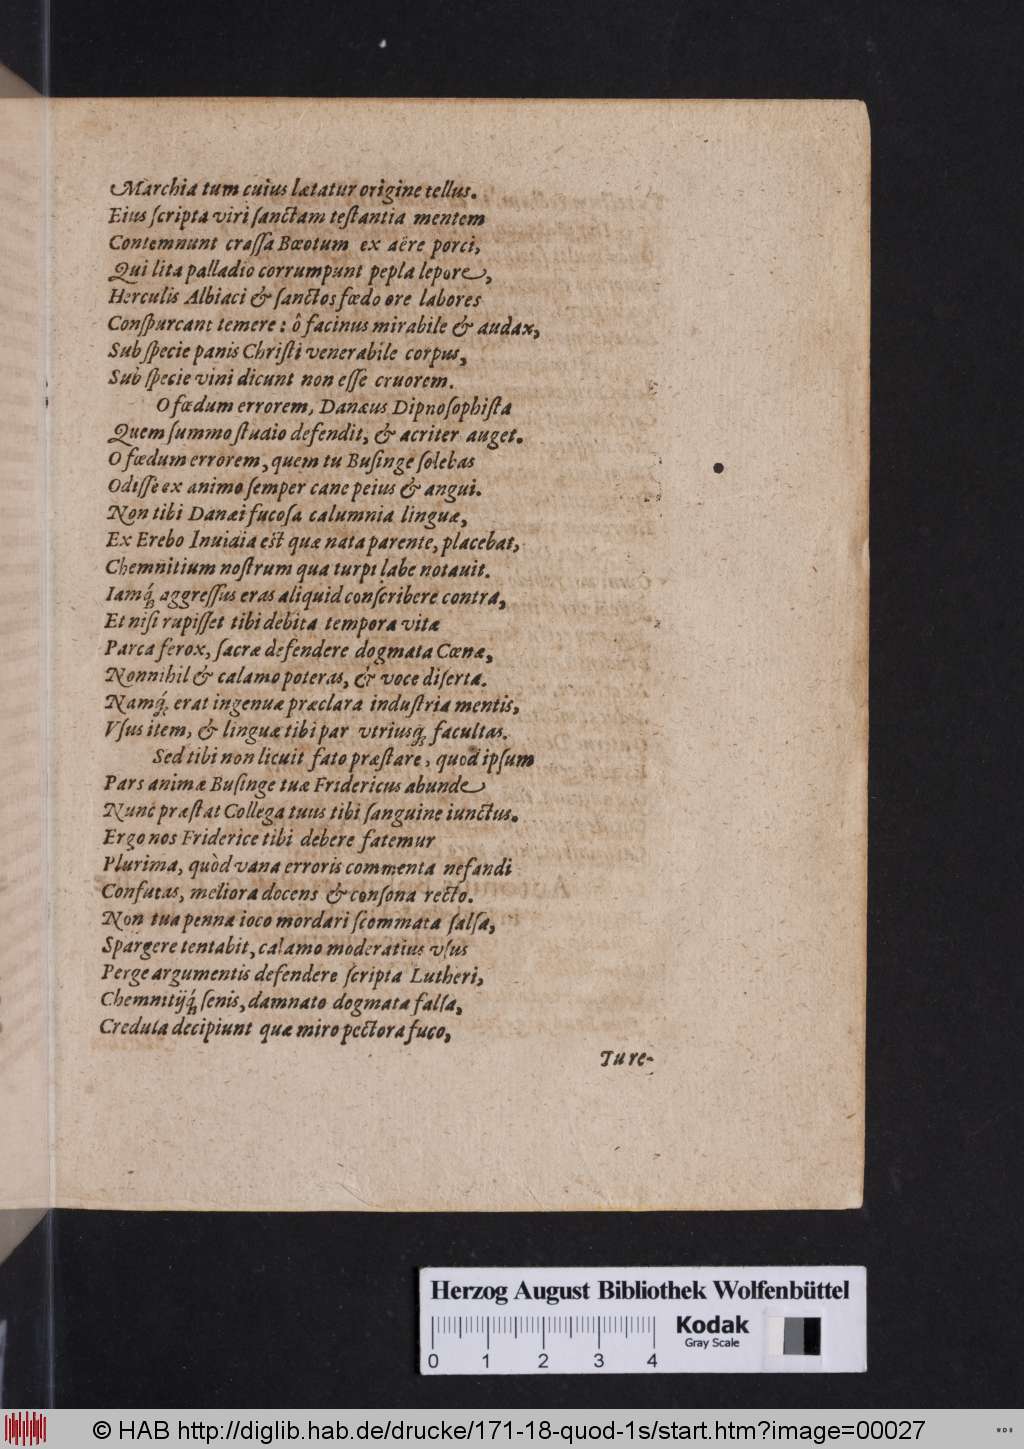 Marchia tum cuius lætatur origine tellus.
Eius ſcripta viri ſanctam teſtantia mentem
Contemnunt craſſa Bœotum ex aëre porci,
Qui lita palladio corrumpunt pepla lepore,
Herculis Albiaci & ſanctos fœdo ore labores
Conſpurcant temere: ô facinus mirabile & audax,
Sub ſpecie panis Chriſti venerabile corpus,
Sub ſpecie vini dicunt non eſſe cruorem.
O fœdum errorem, Danæus Dipnoſophiſta
Quem ſummo ſtudio defendit, & acriter auget.
O fœdum errorem, quem tu Buſinge ſolebas
Odiſſe ex animo ſemper cane peius & angui.
Non tibi Danæi fucoſa calumnia linguæ,
Ex Erebo Inuidia eſt quæ nata parente, placebat,
Chemnitium noſtrum qua turpi labe notauit.
Iamq́; aggreſſus eras aliquid conſcribere contra,
Et niſi rupiſſet tibi debita tempora vitæ
Parca ferox, ſacræ defendere dogmata Cœnæ,
Nonnihil & calamo poteras, & voce diſerta.
Namq́; erat ingenuæ præclara induſtria mentis,
Vſus item, & linguæ tibi par vtriusq; facultas.
Sed tibi non licuit fato præſtare, quod ipſum
Pars animæ Buſinge tuæ Fridericus abunde
Nunc præſtat Collega tuus tibi ſanguine iunctus.
Ergo nos Friderice tibi debere fatemur
Plurima, quòd vana erroris commenta nefandi
Confutas, meliora docens & conſona recto.
Non tua penna ioco mordari ſcommata ſalſa,
Spargere tentabit, calamo moderatius vſus
Perge argumentis defendere ſcripta Lutheri,
Chemnitijq́; ſenis, damnato dogmata falſa,
Credula decipiunt quæ miro pectora fuco,
Tu re-
Herzog August Bibliothek Wolfenbüttel
Kodak
Gray Scale
0 1 2 3 4
© HAB http://diglib.hab.de/drucke/171-18-quod-1s/start.htm?image=00027